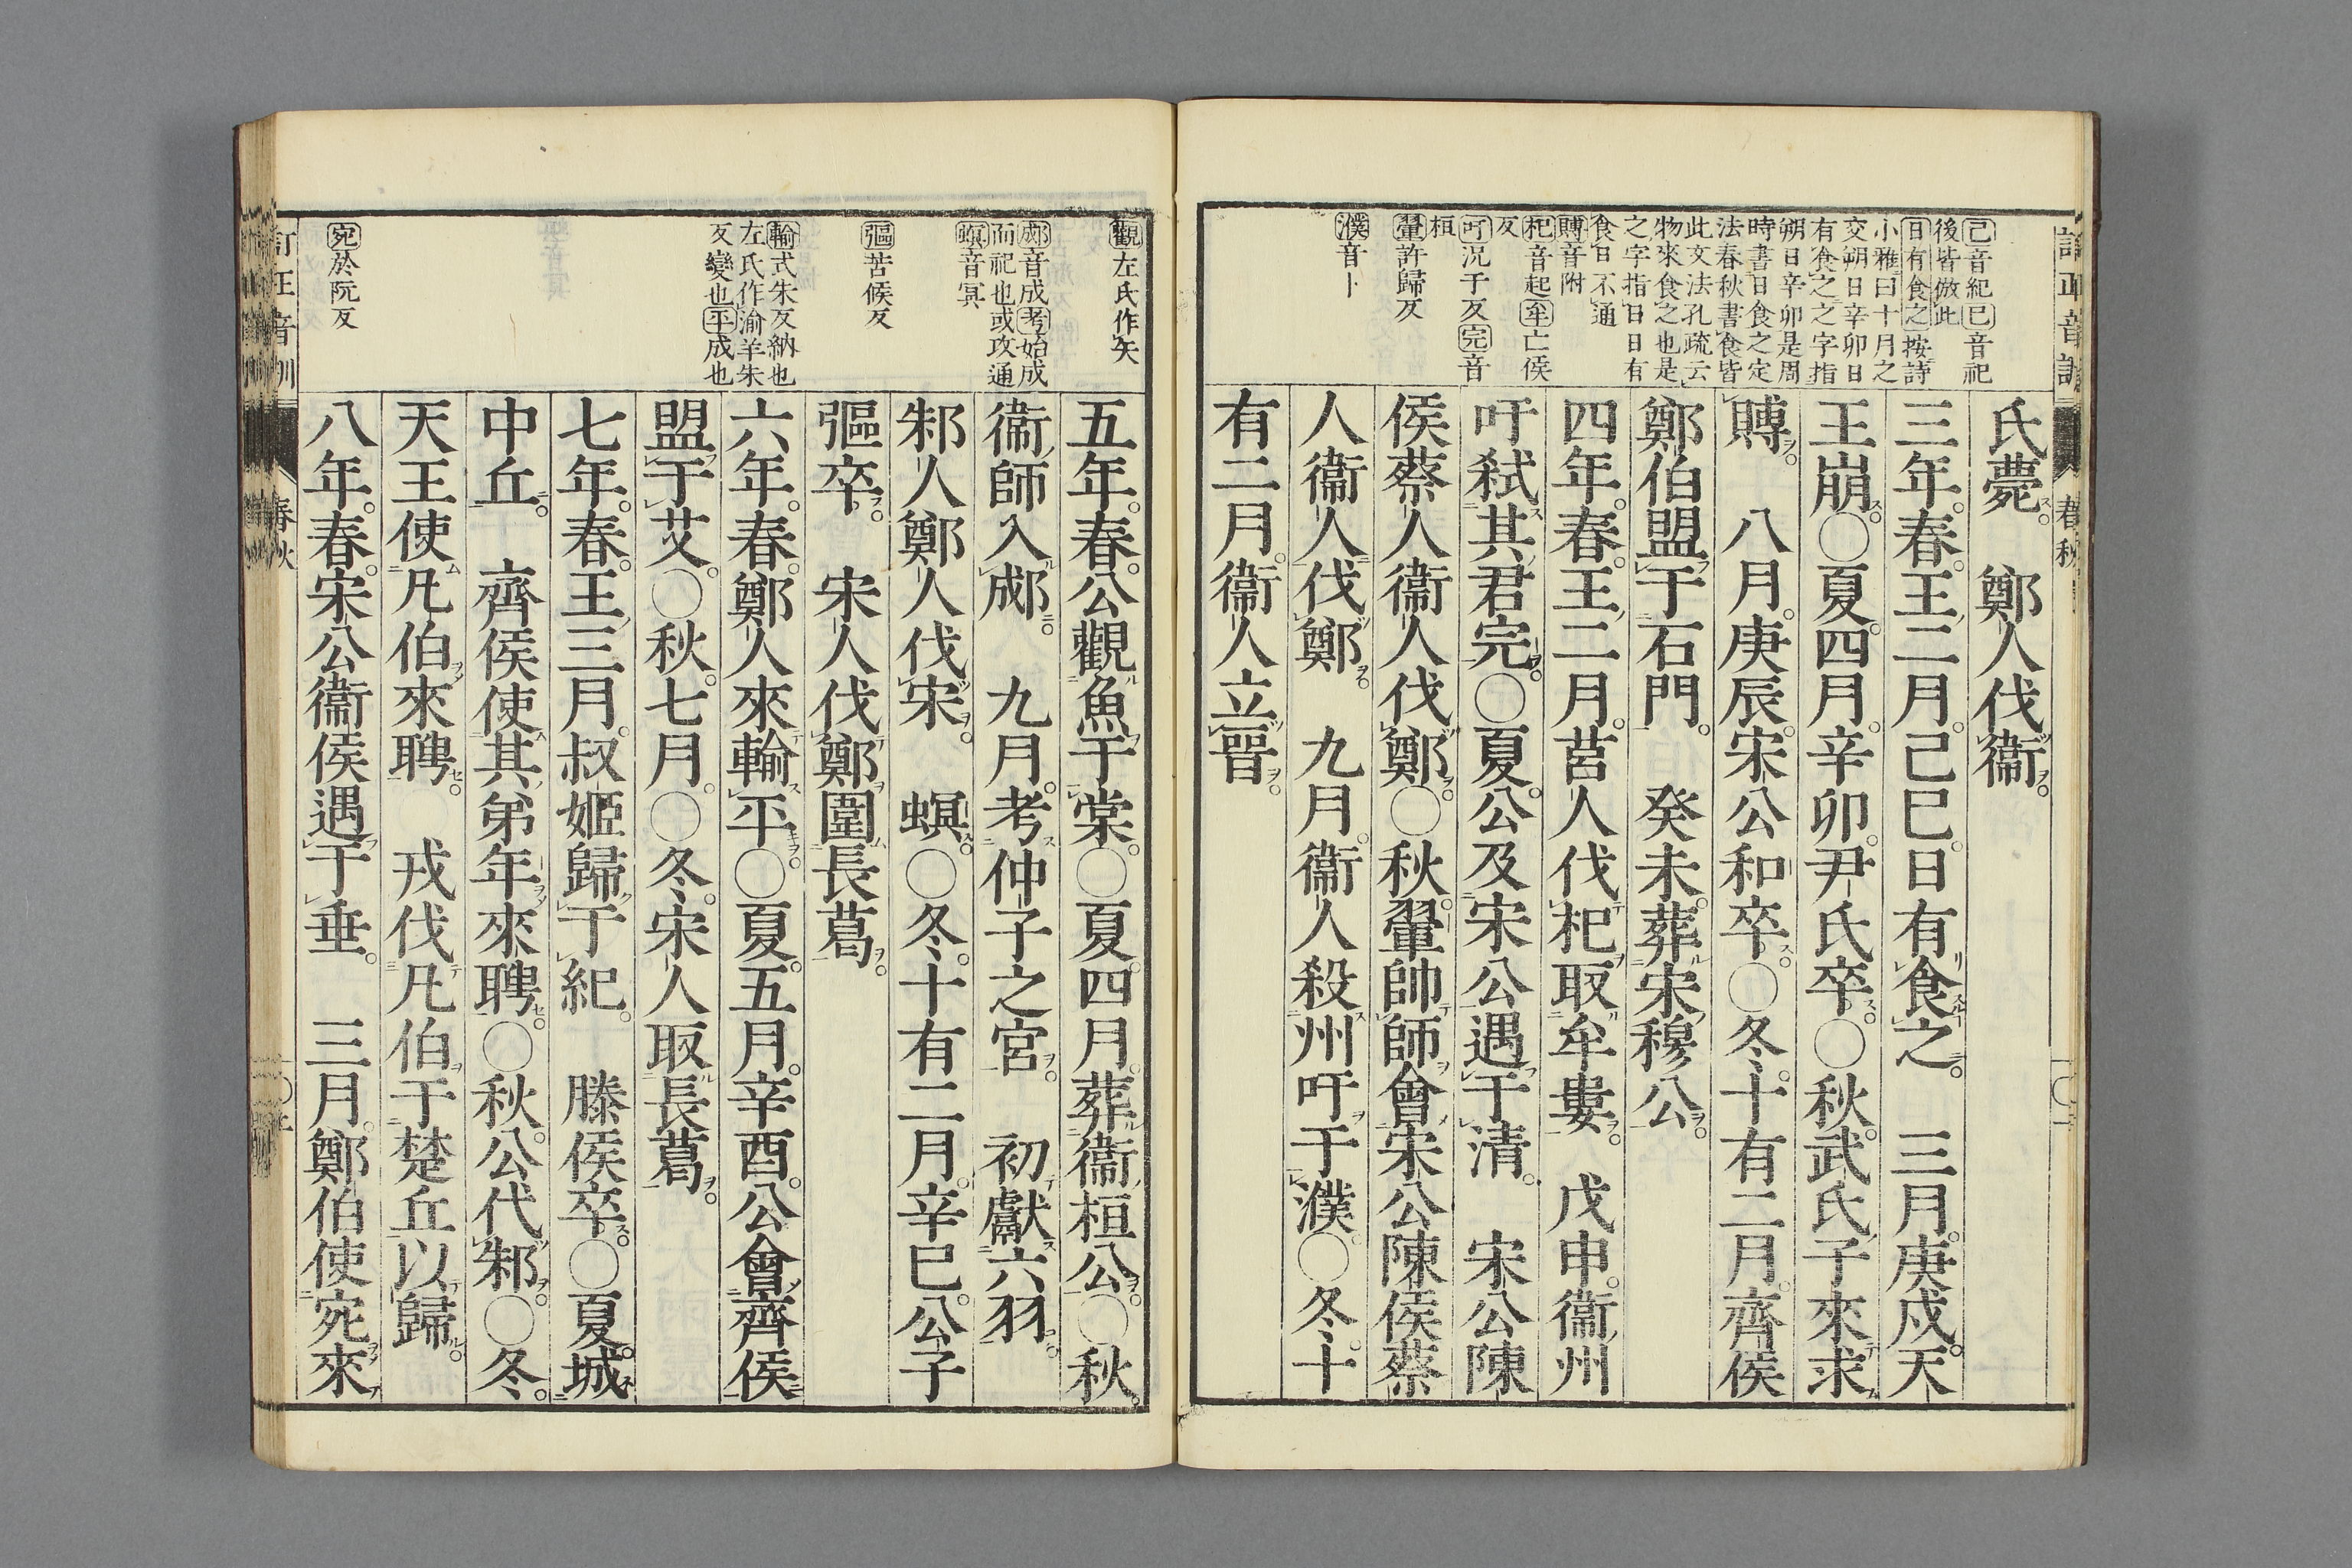 訂正音訓
春秋
己音紀巳音祀
後皆倣此
日有食之按詩
小雅曰十月之
交朔日辛卯日
有食之之字指
朔日辛卯是周
時書日食之定
法春秋書食皆
此文法孔疏云
物來食之也是
之字指日日有
食日不通
賻音附
杞音起牟亡侯
反
吁況于反完音
桓
翬許歸反
濮音卜
氏薨。　鄭人伐衞。
三年。春。王二月。己巳。日有食之。　三月。庚戌。天
王崩。○夏。四月。辛卯。尹氏卒。○秋。武氏子來求
賻。　八月。庚辰。宋公和卒。○冬。十有二月。齊侯
鄭伯盟于石門。　癸未。葬宋穆公。
四年。春。王二月。莒人伐杞取牟婁。　戊申。衞州
吁弒其君完。○夏。公及宋公遇于清。　宋公陳
侯蔡人衞人伐鄭。○秋。翬帥師會宋公陳侯蔡
人衞人伐鄭。　九月。衞人殺州吁于濮。○冬。十
有二月。衞人立晉。
觀左氏作矢
郕音成考始成
而祀也或攻通
螟音冥
彄苦候反
輸式朱反納也
左氏作渝羊朱
反變也平成也
宛於阮反
五年。春。公觀魚于棠。○夏。四月。葬衞桓公。○秋。
衞師入郕。　九月。考仲子之宮。　初獻六羽。
邾人鄭人伐宋。　螟。○冬。十有二月。辛巳。公子
彄卒。　宋人伐鄭圍長葛。
六年。春。鄭人來輸平。○夏。五月。辛酉。公會齊侯
盟于艾。○秋。七月。○冬。宋人取長葛。
七年。春。王三月。叔姬歸于紀。　滕侯卒。○夏。城
中丘。　齊侯使其弟年來聘。○秋。公伐邾。○冬。
天王使凡伯來聘。　戎伐凡伯于楚丘以歸。
八年。春。宋公衞侯遇于垂。　三月。鄭伯使宛來
訂正音訓
春秋